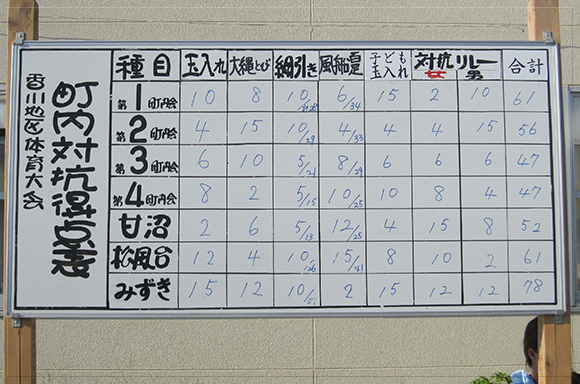 香川地区体育大会
町内対抗得点表
種目 玉入れ 大縄とび 綱引き 風船運 子ども玉入れ 対抗リレー 女 男 合計
第1町内会 10 8 10/28 6/34 15 2 10 61
第2町内会 4 15 10/29 4/33 4 4 15 56
第3町内会 6 10 5/21 8/29 6 6 6 47
第4町内会 8 2 5/15 10/25 10 8 4 47
甘沼 2 6 5/13 12/25 4 15 8 52
松風台 12 4 10/26 15/21 8 10 2 61
みずき 15 12 10/27 2 15 12 12 78